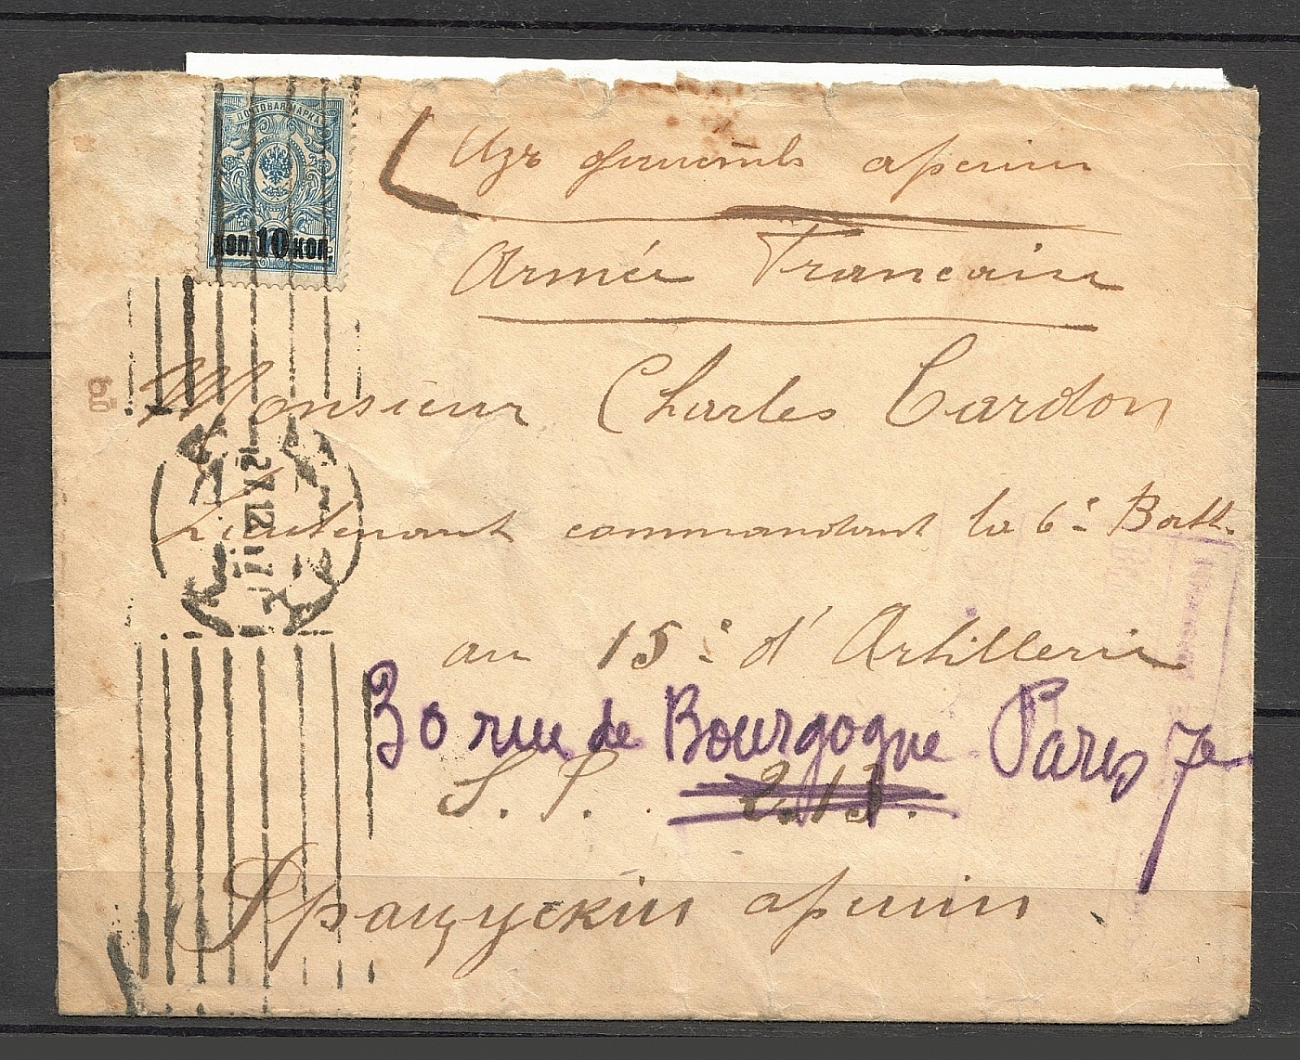 ПОЧТОВАЯ МАРКА
КОП. 10 КОП.
Изъ арміи
Armée Francaise
Monsieur Charles Cardon
Lieutenant commandant la 6e Batt.
au 15e d' Artillerie
30 rue de Bourgogne Paris 7e
S. P. 213.
Французскій арміи
12
17
g.